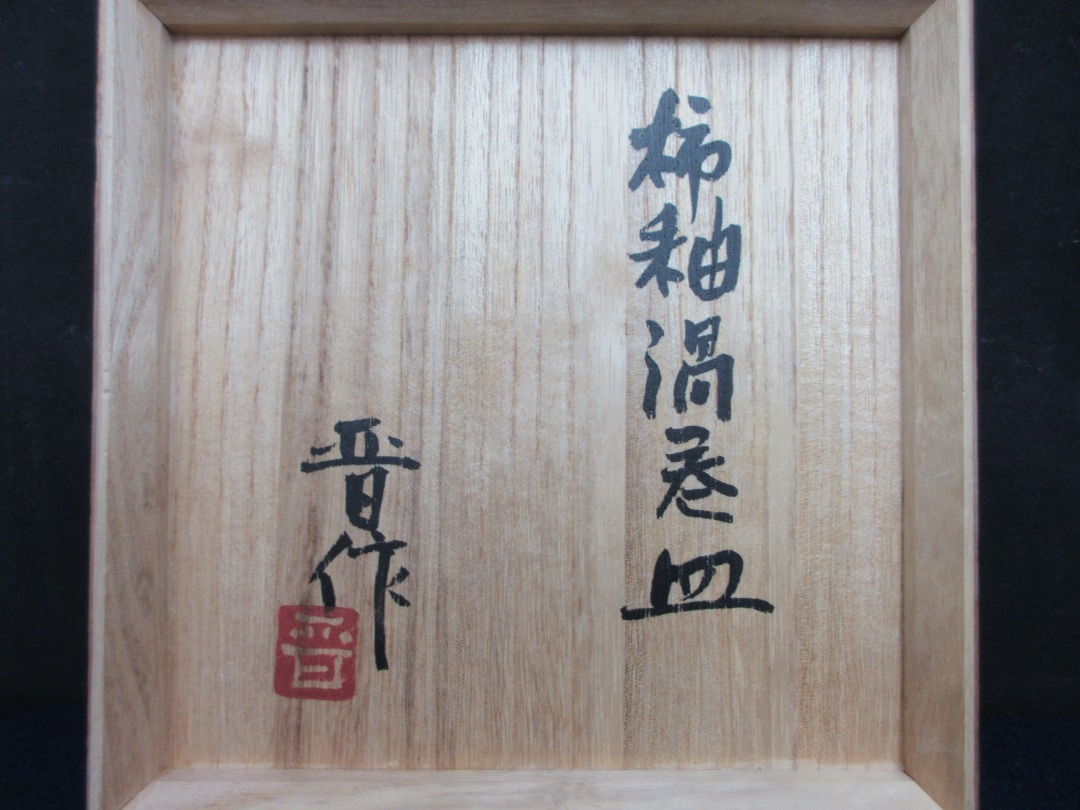 柿釉渦巻皿
晋作
晋